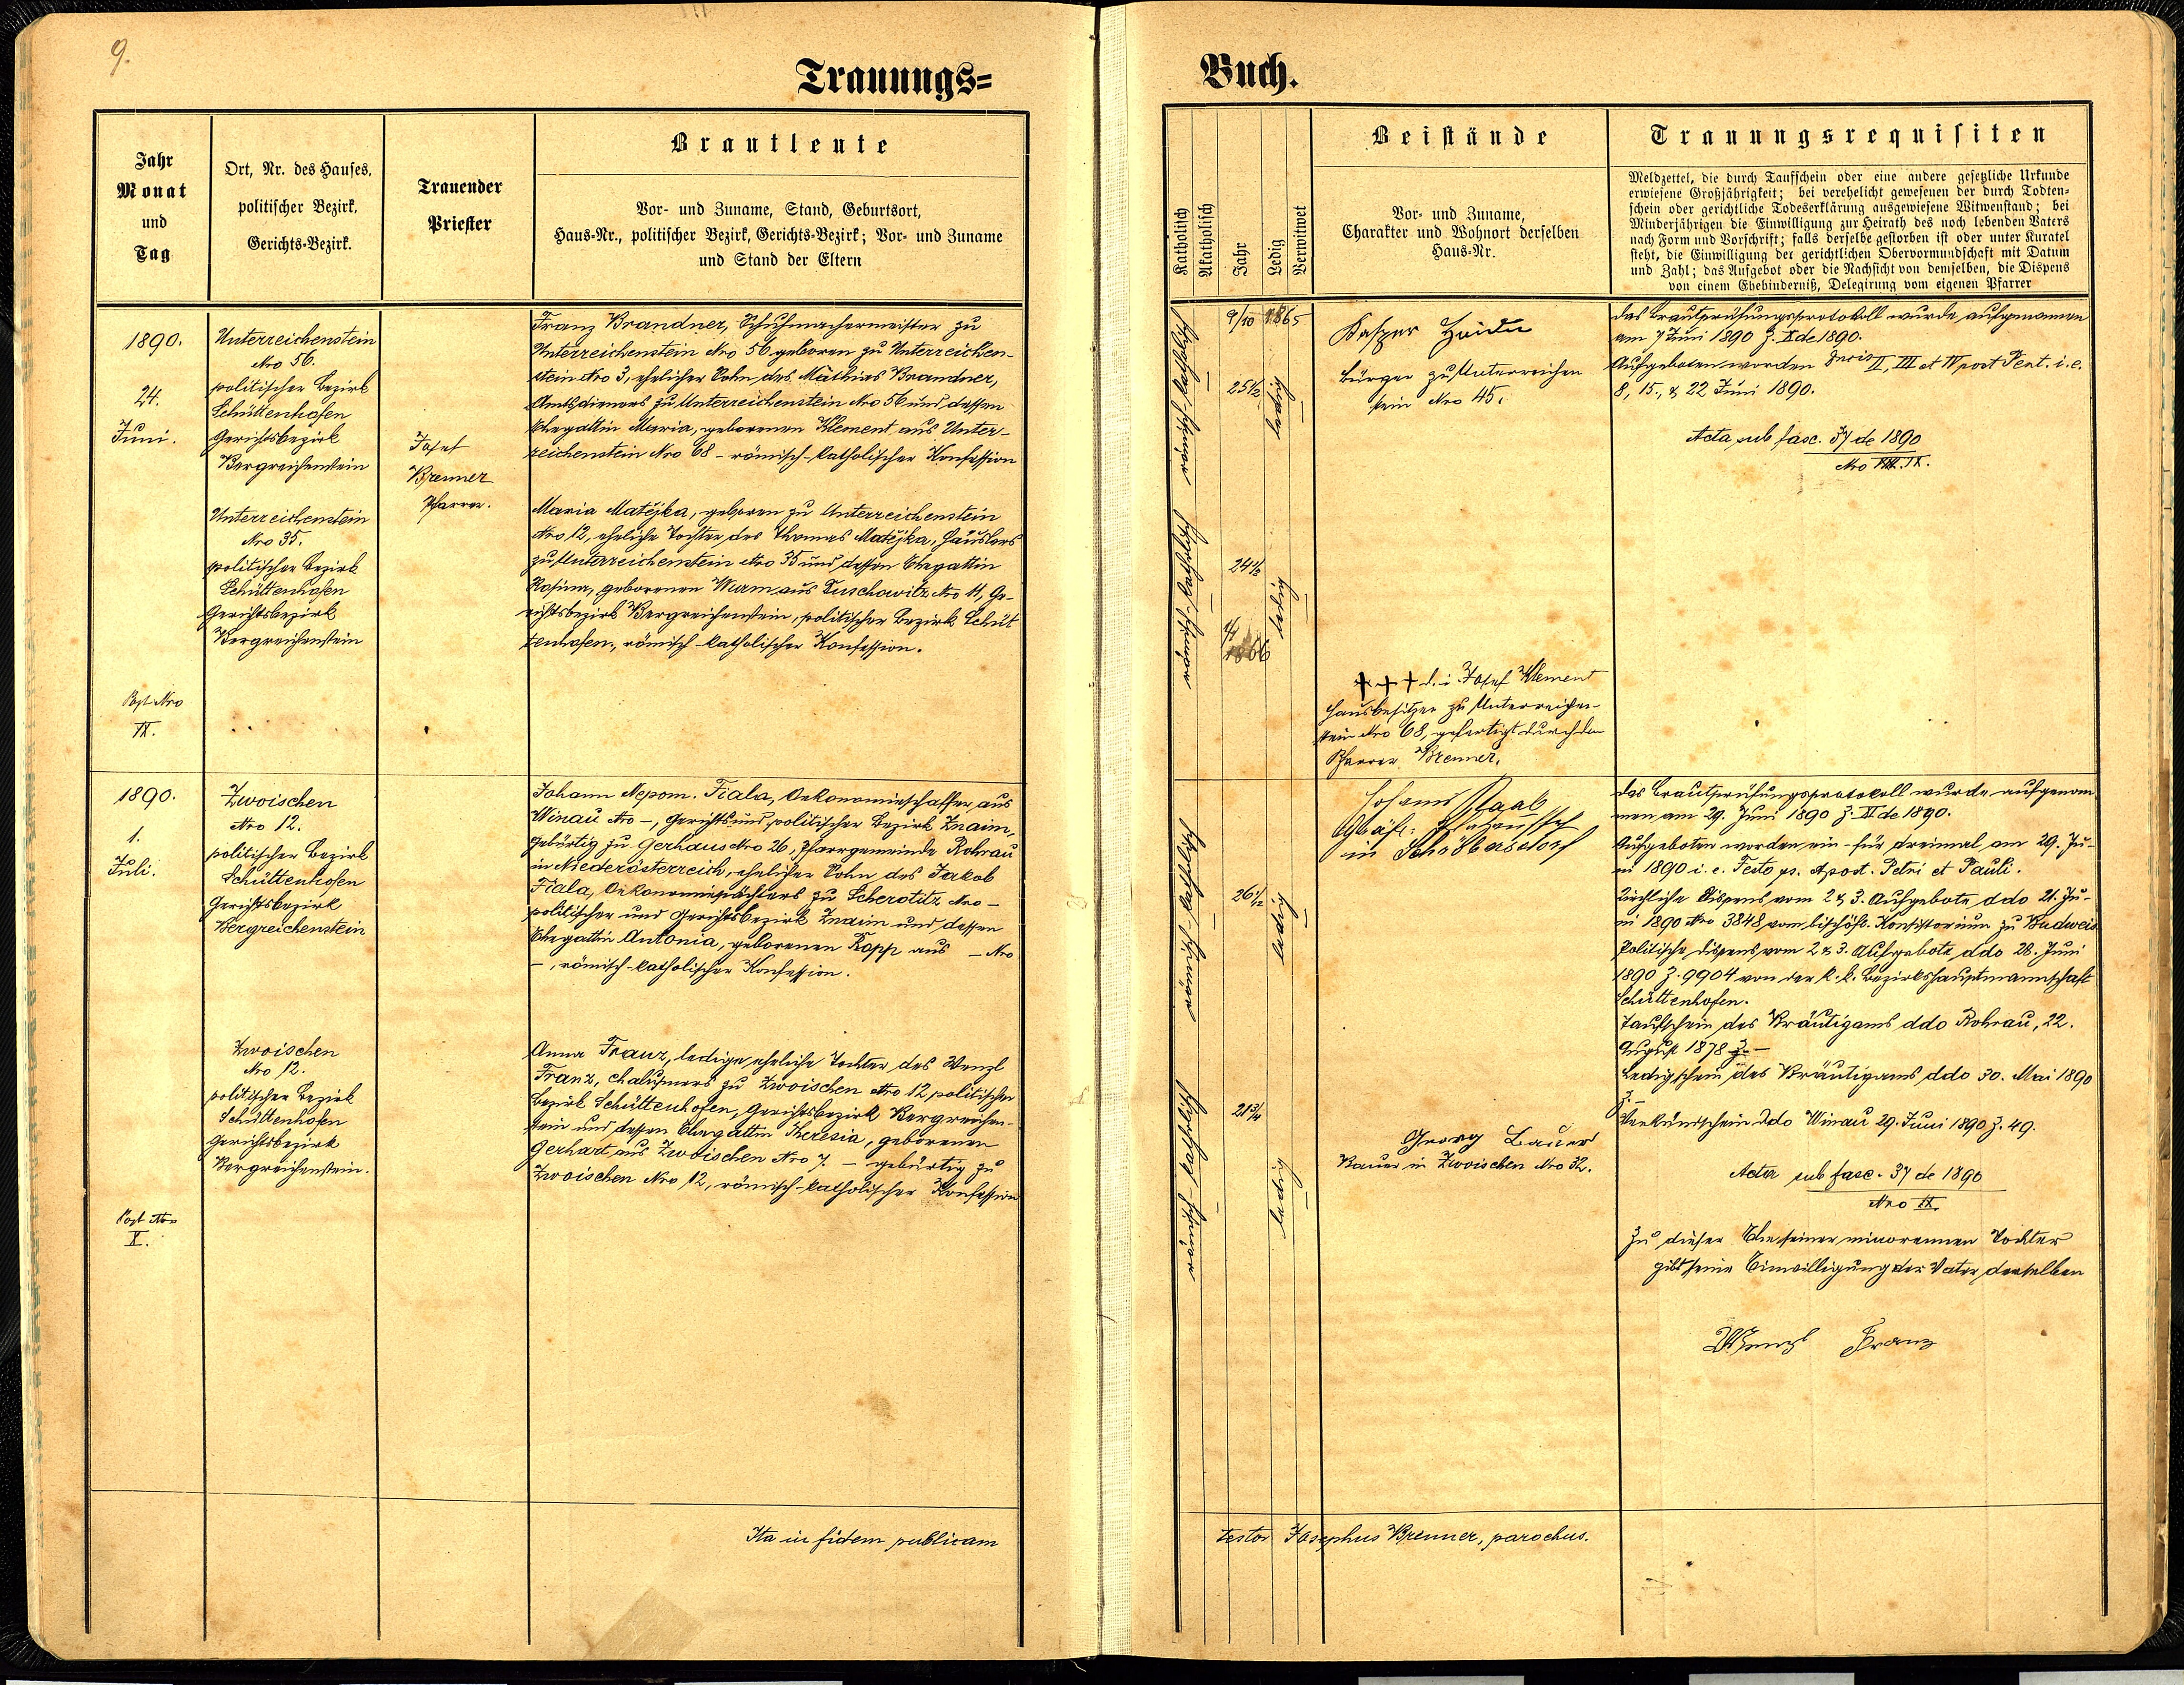 9.
Trauungs=
Buch.
Jahr
Monat
und
Tag
Ort, Nr. des Hauses,
politischer Bezirk,
Gerichts-Bezirk.
Trauender
Priester
Brautleute
Vor- und Zuname, Stand, Geburtsort,
Haus-Nr., politischer Bezirk, Gerichts-Bezirk; Vor- und Zuname
und Stand der Eltern
Katholisch
Akatholisch
Jahr
Ledig
Verwitwet
Beistände
Vor- und Zuname,
Charakter und Wohnort derselben
Haus-Nr.
Trauungsrequisiten
Meldzettel, die durch Taufschein oder eine andere gesetzliche Urkunde
erwiesene Großjährigkeit; bei verehelicht gewesenen der durch Todten-
schein oder gerichtliche Todeserklärung ausgewiesene Witwenstand; bei
Minderjährigen die Einwilligung zur Heirath des noch lebenden Vaters
nach Form und Vorschrift; falls derselbe gestorben ist oder unter Kuratel
steht, die Einwilligung der gerichtlichen Obervormundschaft mit Datum
und Zahl; das Aufgebot oder die Nachsicht von demselben, die Dispens
von einem Ehebinderniß, Delegirung vom eigenen Pfarrer
1890.
24.
Juni.
Post Nro
IX.
Unterreichenstein
Nro 56.
politischer Bezirk
Schüttenhofen
Gerichtsbezirk
Bergreichenstein
Unterreichenstein
Nro 35.
politischer Bezirk
Schüttenhofen
Gerichtsbezirk
Bergreichenstein
Josef
Brenner
Pfarrer.
Franz Brandner, Schuhmachermeister zu
Unterreichenstein Nro 56 geboren zu Unterreichen-
stein Nro 3, ehelicher Sohn des Mathias Brandner,
Amtsdieners zu Unterreichenstein Nro 56 und dessen
Ehegattin Maria, geborenen Klement aus Unter-
reichenstein Nro 68 – römisch-katholischer Konfession
Maria Matějka, geboren zu Unterreichenstein
Nro 12, eheliche Tochter des Thomas Matějka, Häuslers
zu Unterreichenstein Nro 35 und dessen Ehegattin
Rosina, geborenen Wurm aus Duschowitz Nro 11, Ge-
richtsbezirk Bergreichenstein, politischer Bezirk Schüt
tenhofen, römisch-katholischer Konfession.
römisch-katholisch
römisch-katholisch
9/10 1865
25½
24½
1/1
1866
ledig
ledig
Kaspar
Bürger zu Unterreichen
stein Nro 45.
+++ d. i. Josef Klement
Hausbesitzer zu Unterreichen-
stein Nro 68, gefertigt durch den
Pfarrer Brenner.
das Brautprüfungsprotokoll wurde aufgenommen
am 7 Juni 1890 Z. X de 1890.
Aufgeboten worden Dncis II, III et IV post Pent. i. e.
8, 15., & 22 Juni 1890.
Acta sub fasc. 37 de 1890
Nro IX.
1890.
1.
Juli.
Post Nro
X.
Zwoischen
Nro 12.
politischer Bezirk
Schüttenhofen
Gerichtsbezirk
Bergreichenstein
Zwoischen
Nro 12.
politischer Bezirk
Schüttenhofen
Gerichtsbezirk
Bergreichenstein.
Johann Nepom. Fiala, Oekonomieschaffer aus
Winau Nro –, Gerichts und politischer Bezirk Znaim,
gebürtig zu Gerhaus Nro 26, Pfarrgemeinde Rohrau
in Niederösterreich, ehelicher Sohn des Jakob
Fiala, Oekonomiepächters zu Scherotitz Nro –
politischer und Gerichtsbezirk Znaim und dessen
Ehegattin Antonia, geborenen Kopp aus – Nro
–, römisch-katholischer Konfession.
Anna Franz, ledige, eheliche Tochter des Wenzl
Franz, Chalupners zu Zwoischen Nro 12 politischer
Bezirk Schüttenhofen, Gerichtsbezirk Bergreichen-
stein und dessen Ehegattin Theresia, geborenen
Gerhart aus Zwoischen Nro 7. – gebürtig zu
Zwoischen Nro 12, römisch-katholischer Konfession
römisch-katholisch
römisch-katholisch
26½
21¾
ledig
ledig
Johann Raab
in Schröbersdorf
Georg Bauer
Bauer in Zwoischen Nro 32.
das Brautprüfungsprotokoll wurde aufgenom
men am 29. Juni 1890 Z. XI de 1890.
Aufgeboten worden ein- für dreimal am 29. Ju-
ni 1890 i. e. Festo ss. Apost. Petri et Pauli.
Kirchliche Dispens vom 2 & 3. Aufgebote ddo 21. Ju-
ni 1890 Nro 3848 vom bischöfl. Konsistorium zu Budweis
Politische Dispens vom 2 & 3. Aufgebote ddo 28. Juni
1890 Z. 9904 von der k. k. Bezirkshauptmannschaft
Schüttenhofen.
Taufschein des Bräutigams ddo Rohrau, 22.
August 1878 Z. –
Ledigschein des Bräutigams ddo 30. Mai 1890
Z. –
Verkündschein ddo Winau 29. Juni 1890 Z. 49.
Acta sub fasc. 37 de 1890
Nro IX.
Zu dieser Ehe seiner minorennen Tochter
gibt seine Einwilligung der Vater derselben
Wenzl Franz
Ita in fidem publicam
testor Josephus Brenner, parochus.